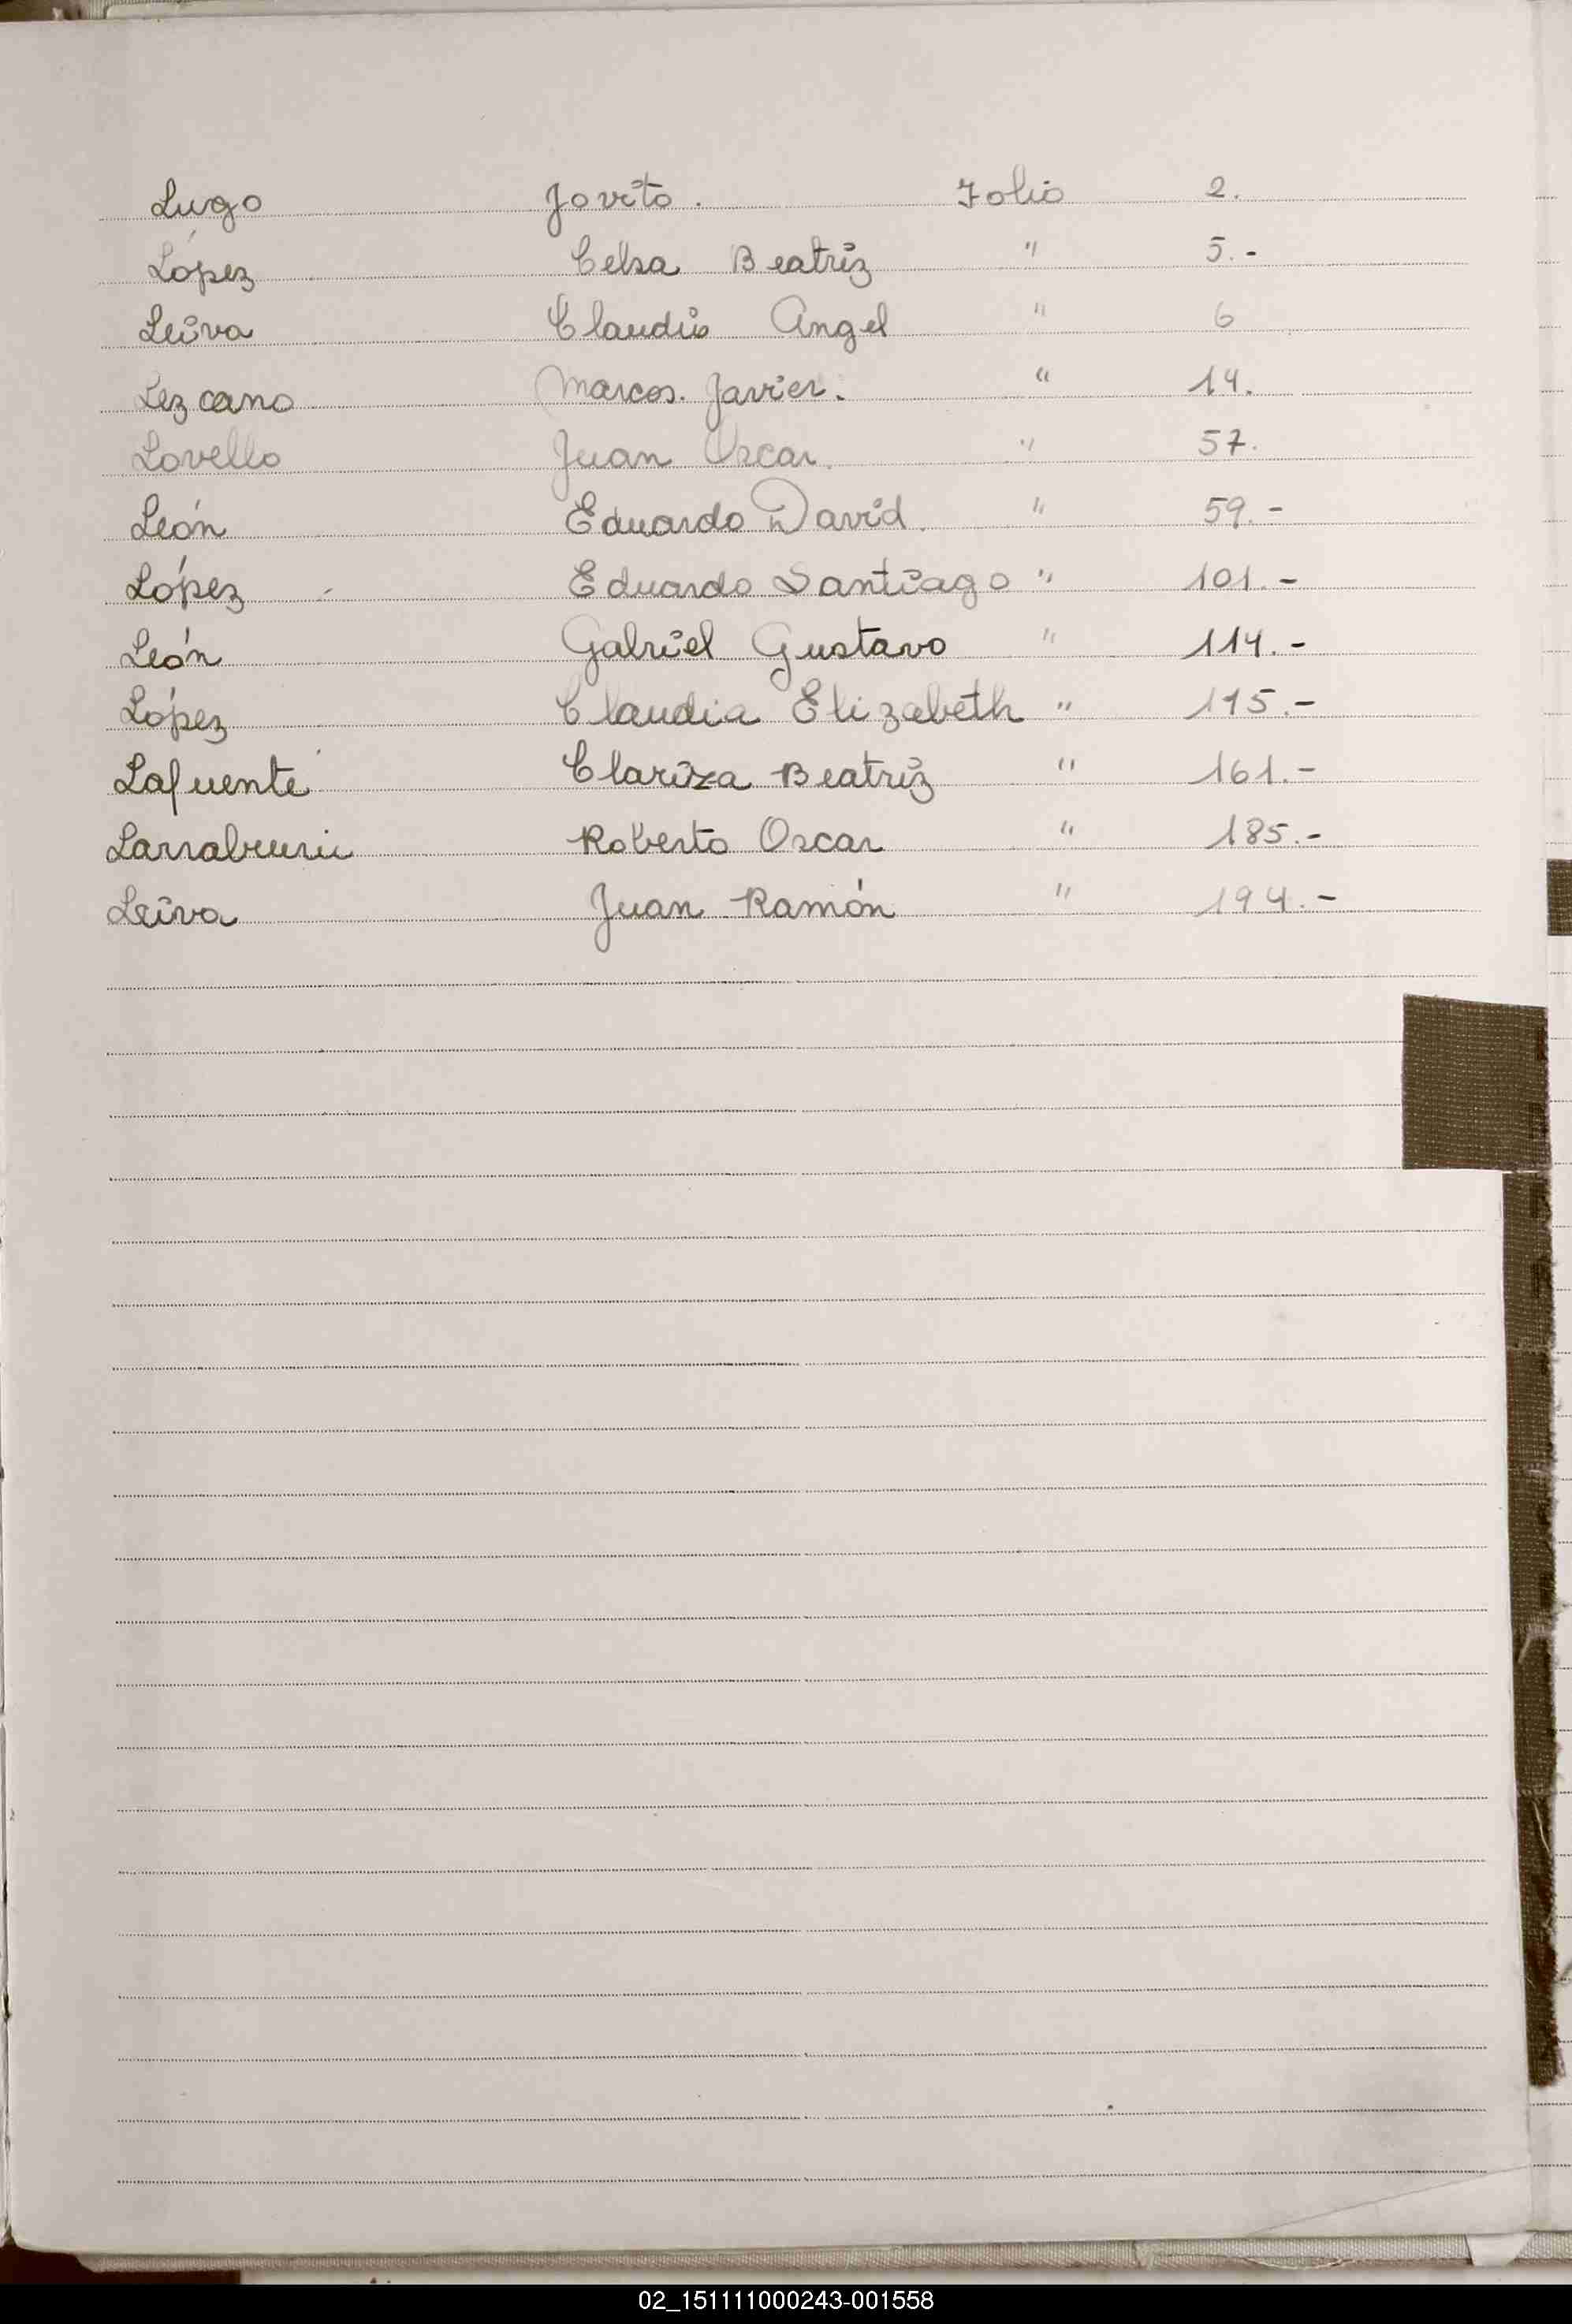 Lugo Jovito. Folio 2.
López Celsa Beatriz " 5.-
Leiva Claudio Angel " 6
Lezcano Marcos. Javier. " 14.
Lovello Juan Oscar. " 57.
León Eduardo David. " 59.-
López Eduardo Santiago " 101.-
León Gabriel Gustavo " 114.-
López Claudia Elizabeth " 115.-
Lafuente Clariza Beatriz " 161.-
Roberto Oscar " 185.-
Leiva Juan Ramón " 194.-
02_151111000243-001558